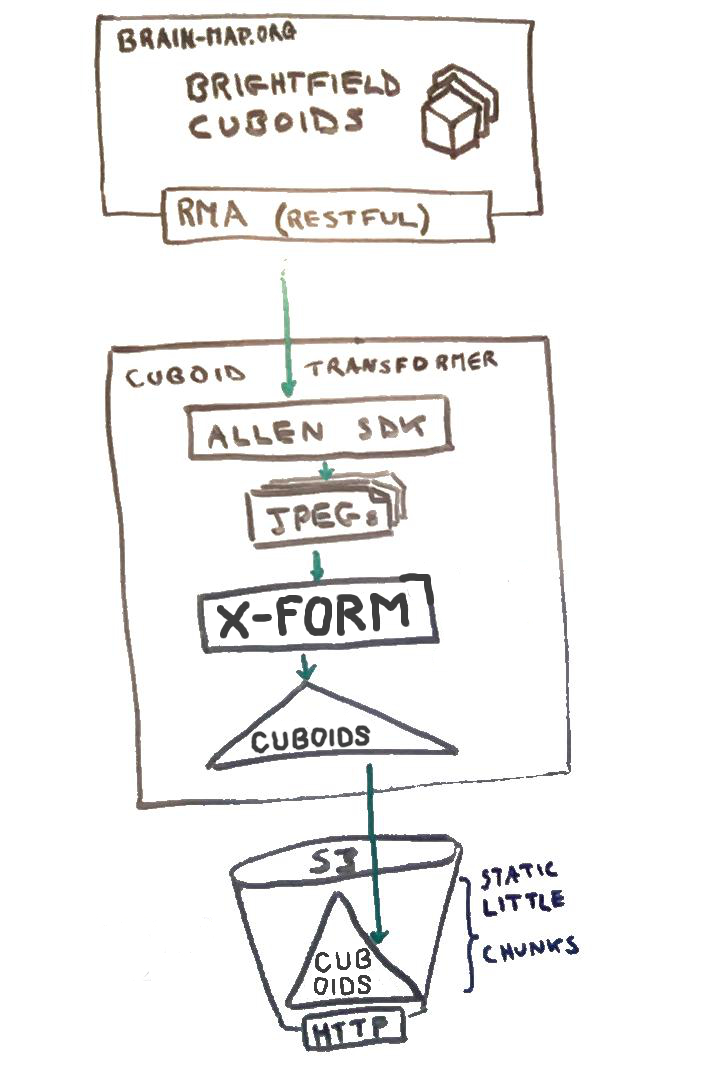 BRAIN-MAP.ORG
BRIGHTFIELD
CUBOIDS
RMA (RESTFUL)
CUBOID TRANSFORMER
ALLEN SDK
JPEGs
X-FORM
CUBOIDS
S3
STATIC
LITTLE
CHUNKS
CUB
OIDS
HTTP